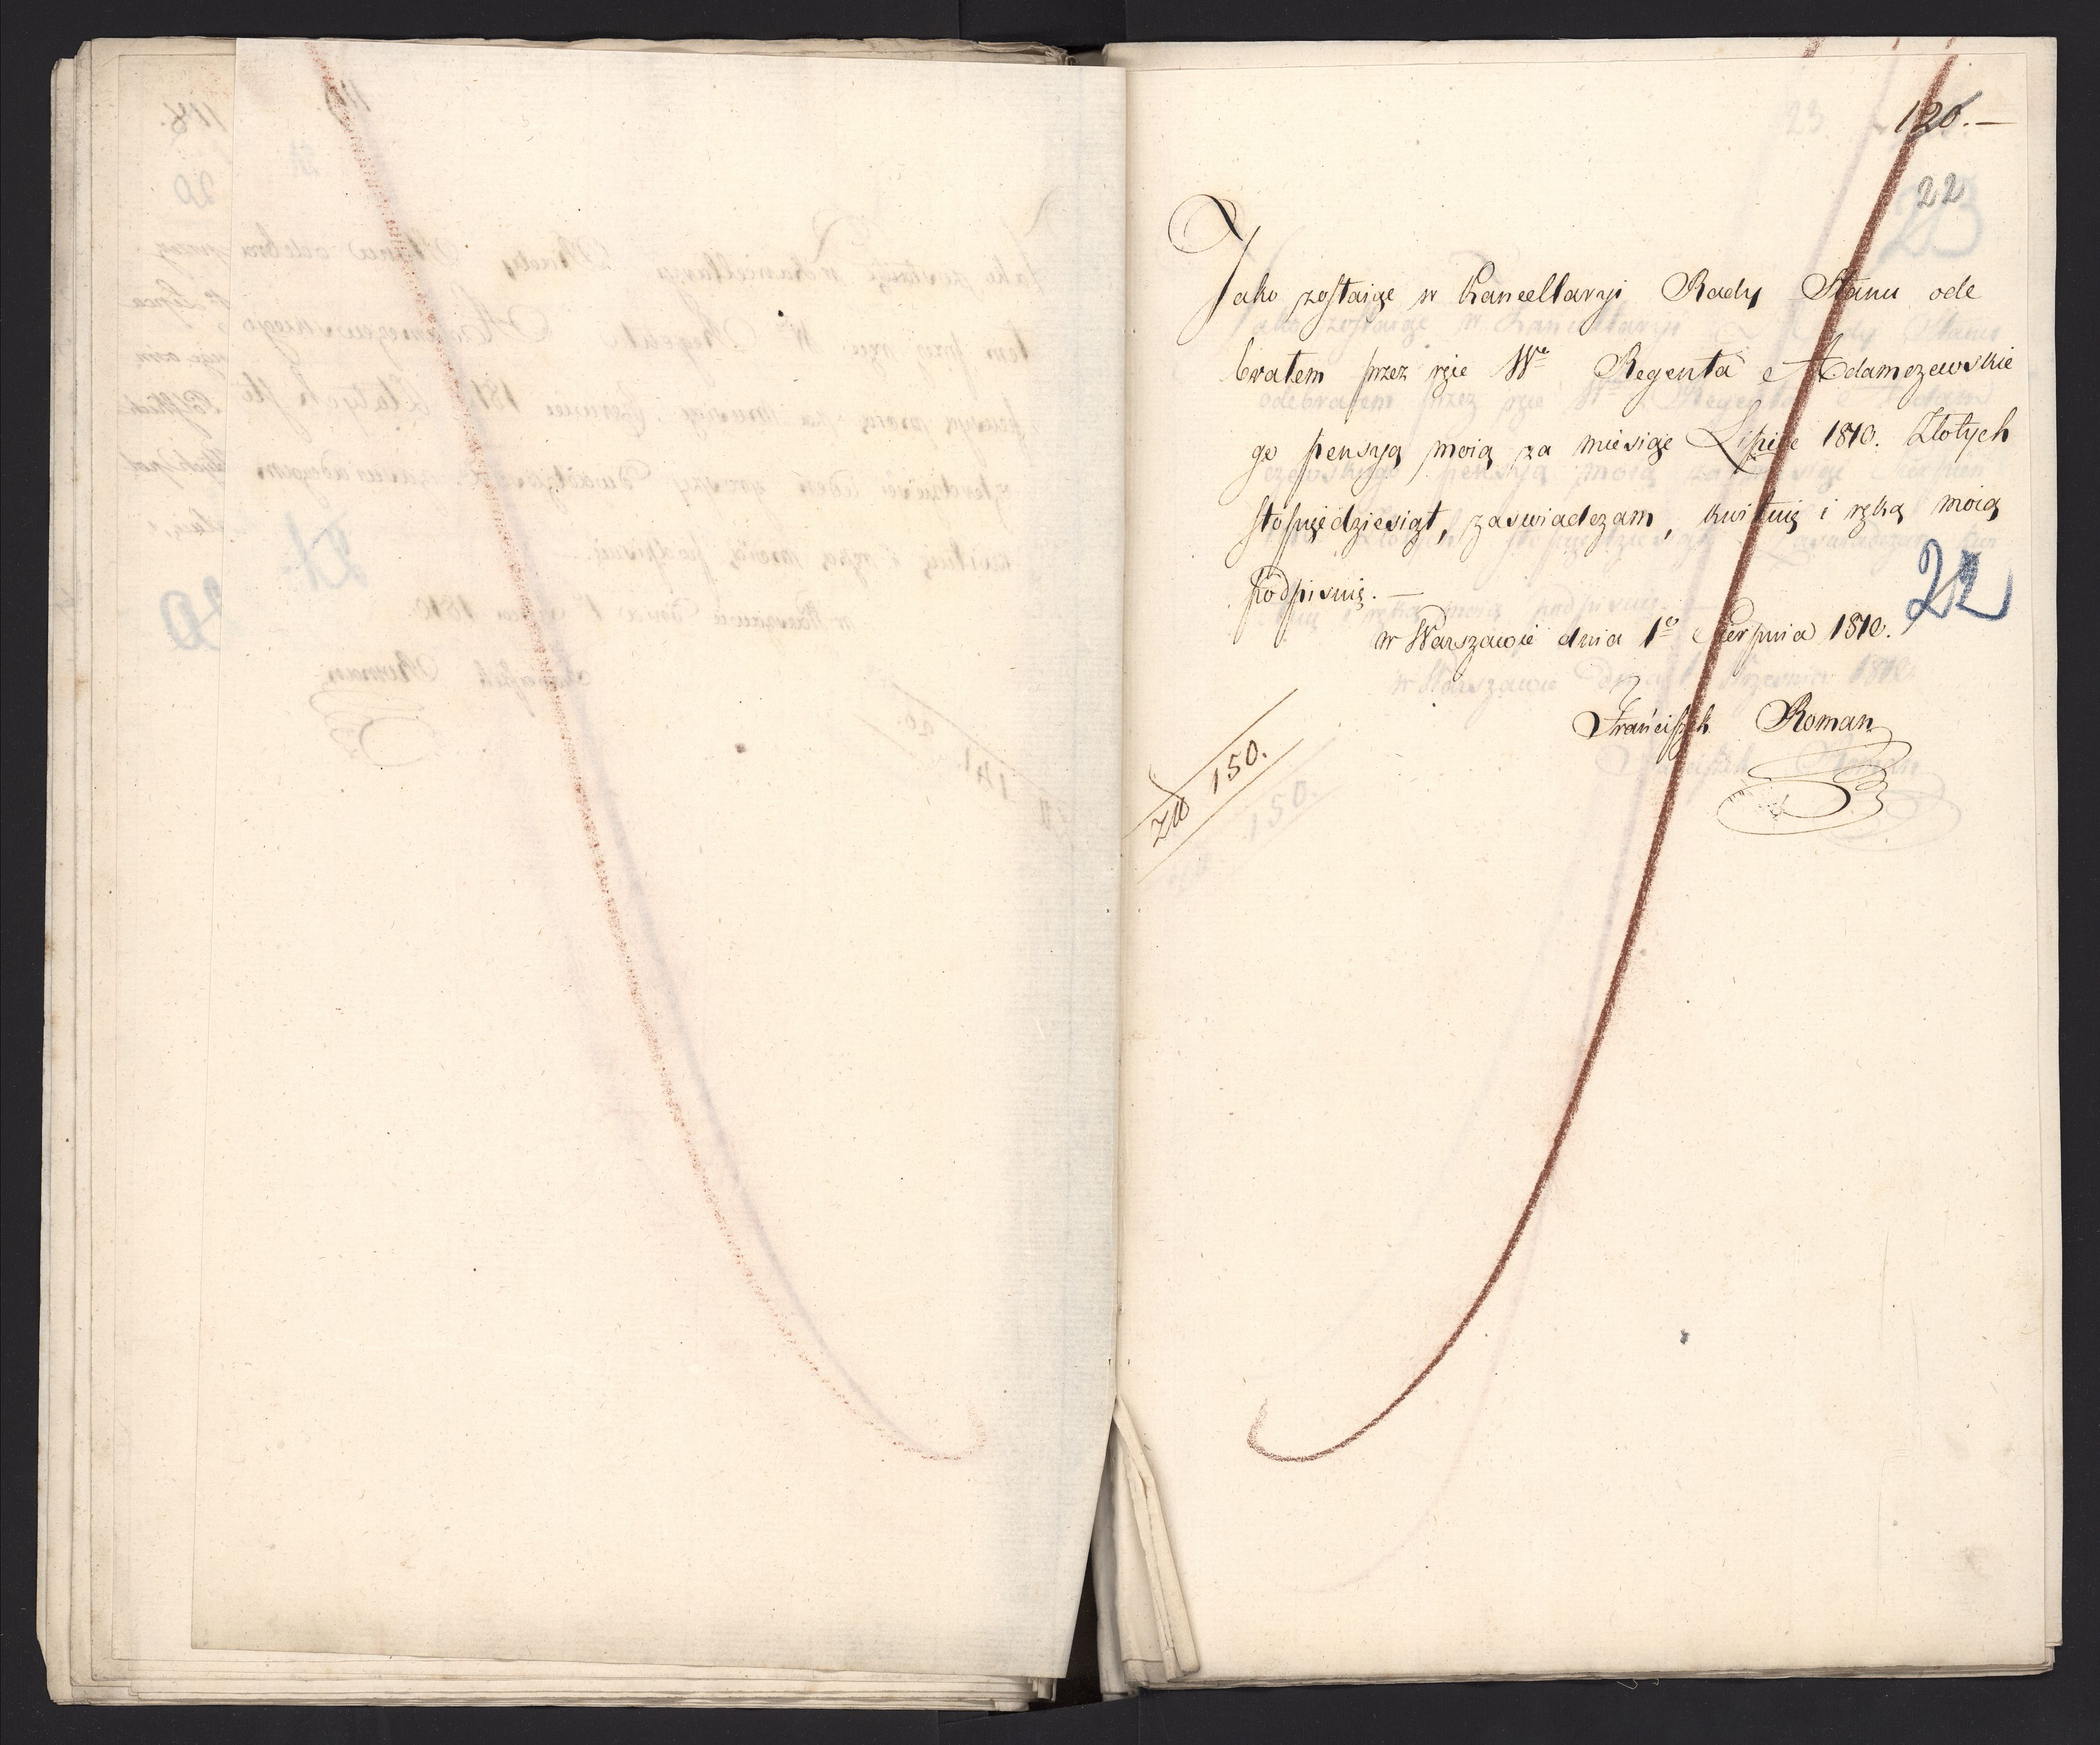 120.—
22
Jako zostaiąc w Kancellaryi Rady Stanu ode
brałem przez ręce Wo Regenta Adamczewskie
go pensyą moią za miesiąc Lipiec 1810. Złotych
stopięćdziesiąt, zaswiadczam, kwituię i ręką moią
podpisuię. —
22
w Warszawie dnia 1o Sierpnia 1810.
Franciszek Roman
Złł 150.